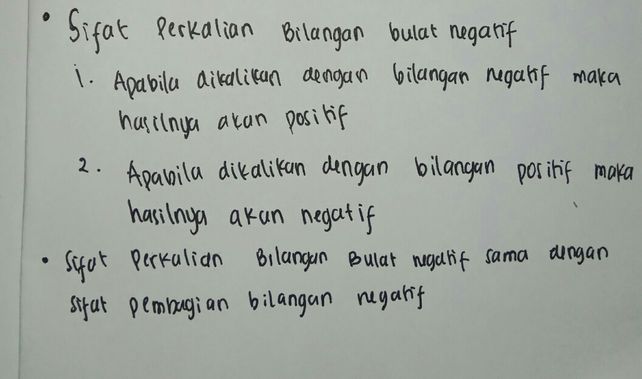 • Sifat Perkalian Bilangan bulat negatif
1. Apabila dikalikan dengan bilangan negatif maka
hasilnya akan positif
2. Apabila dikalikan dengan bilangan positif maka
hasilnya akan negatif
• Sifat Perkalian Bilangan Bulat negatif sama dengan
sifat pembagian bilangan negatif